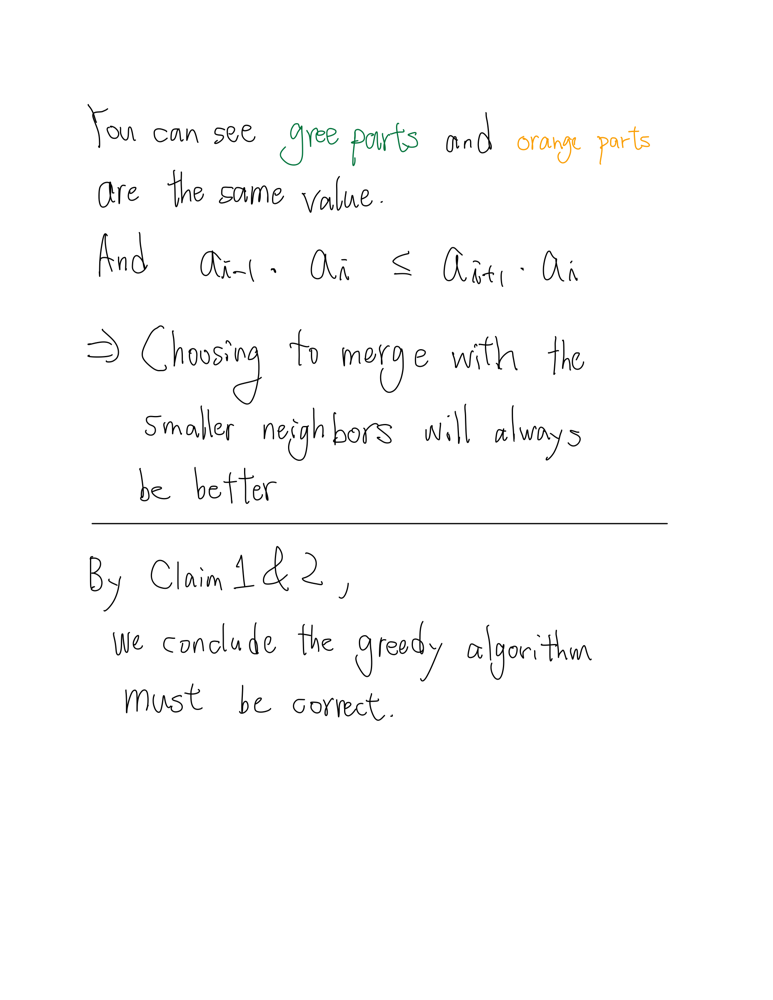 You can see gree parts and orange parts
are the same value.
And a_{i-1} · a_i ≤ a_{i+1} · a_i
⇒ Choosing to merge with the
smaller neighbors will always
be better
By Claim 1 & 2,
we conclude the greedy algorithm
must be correct.